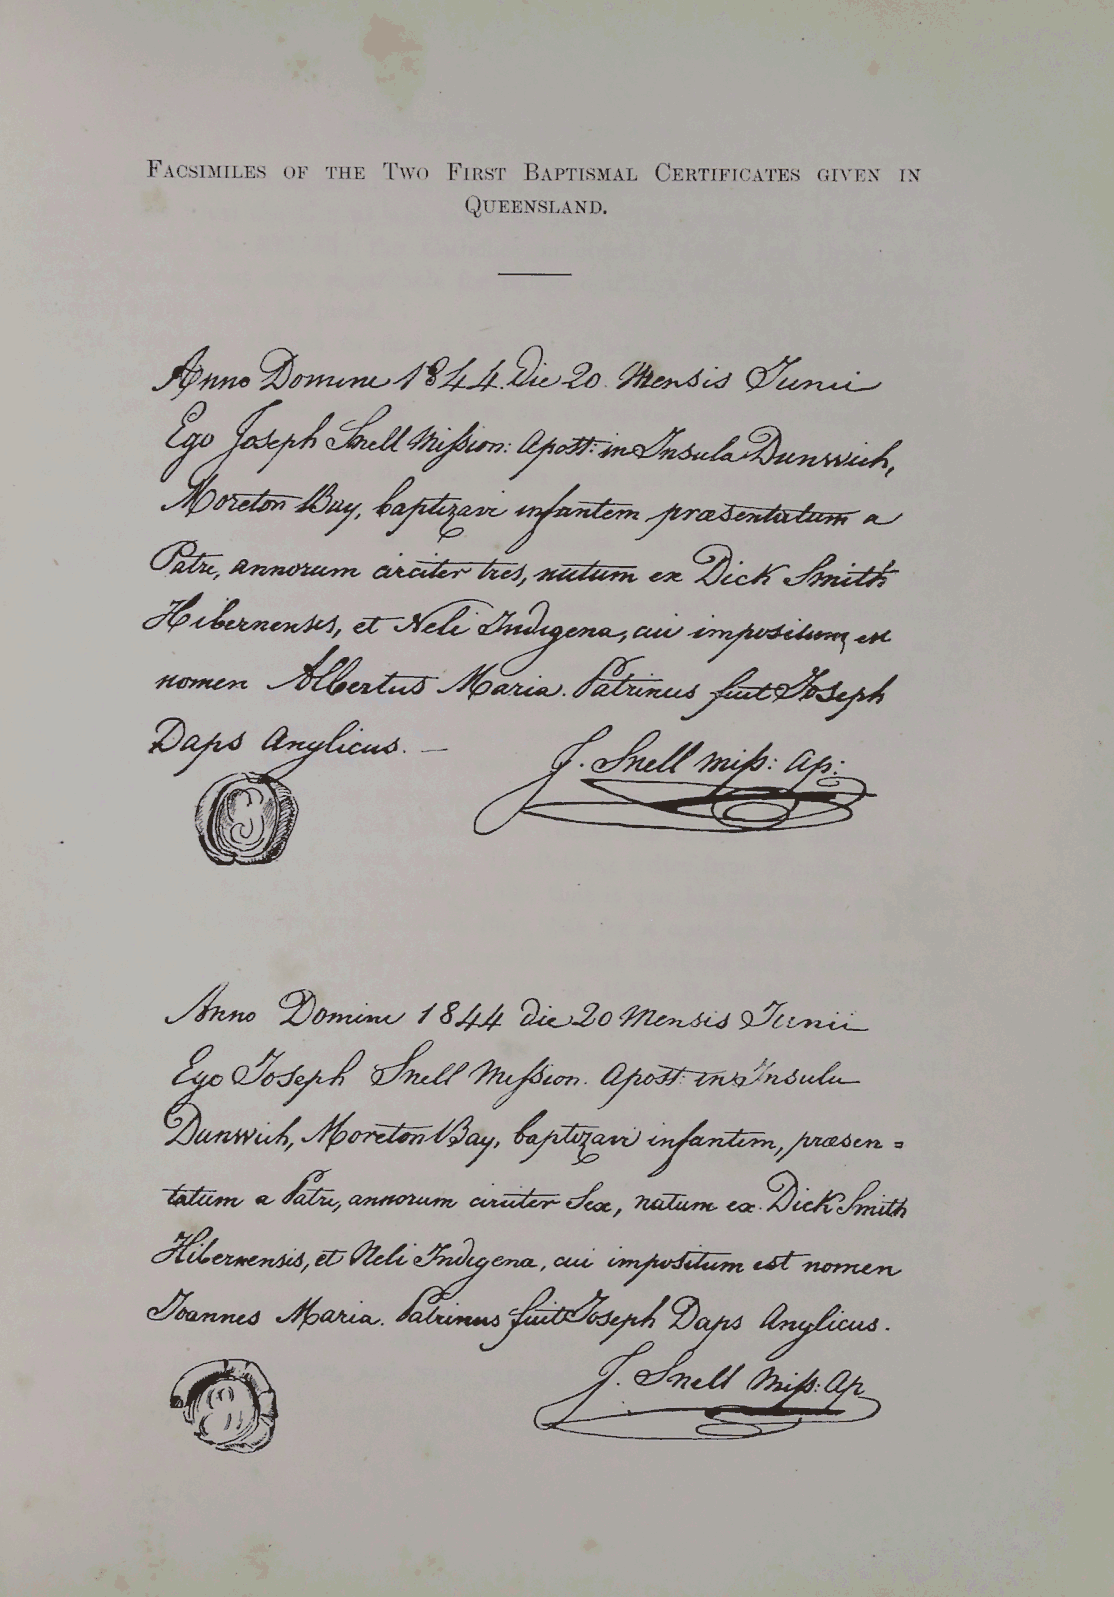 FACSIMILES OF THE TWO FIRST BAPTISMAL CERTIFICATES GIVEN IN
QUEENSLAND.
Anno Domini 1844. Die 20. Mensis Junii
Ego Joseph Snell Mission: Apost: in Insula Dunwich,
Moreton Bay, baptizavi infantem præsentatum a
Patre, annorum circiter tres, natum ex Dick Smith
Hibernensis, et Neli Indigena, cui impositum est
nomen Albertus Maria. Patrinus fuit Joseph
Daps Anglicus. —
J. Snell Miss: Ap:
Anno Domini 1844 die 20 Mensis Junii
Ego Joseph Snell Mission. Apost: in Insula
Dunwich, Moreton Bay, baptizavi infantem, præsen=
tatum a Patre, annorum circiter Sex, natum ex Dick Smith
Hibernensis, et Neli Indigena, cui impositum est nomen
Joannes Maria. Patrinus fuit Joseph Daps Anglicus.
J. Snell Miss: Ap